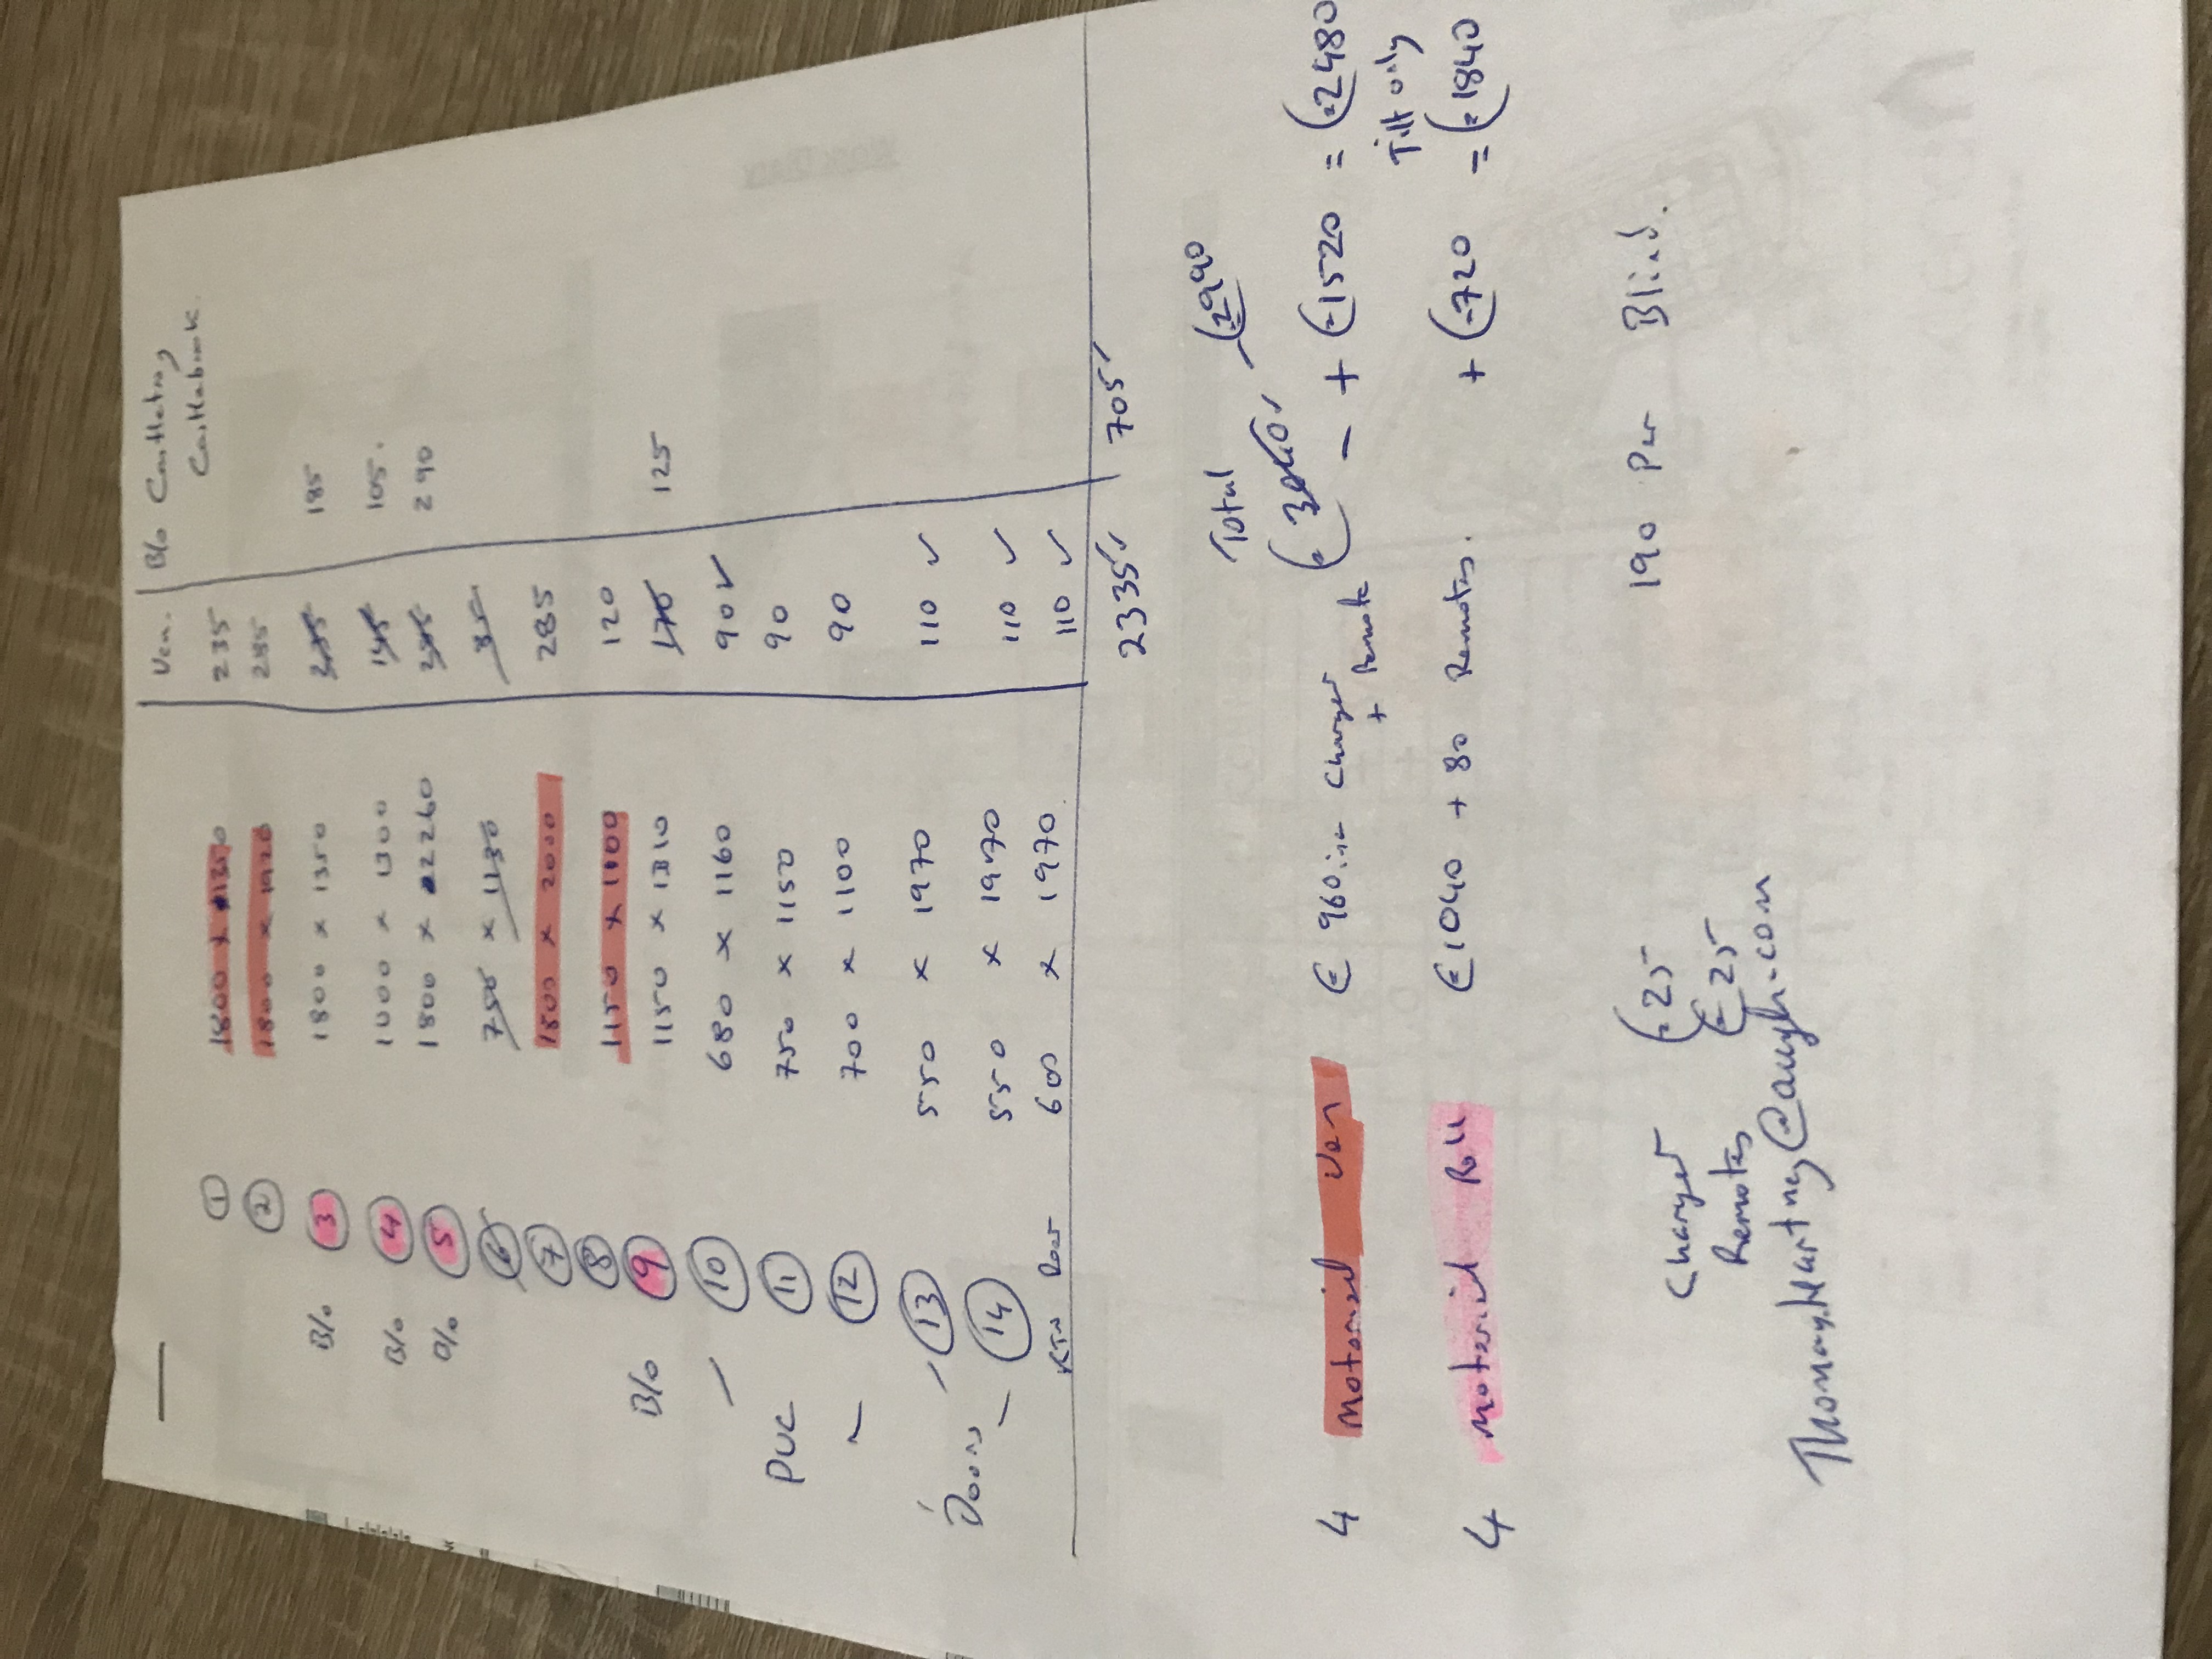 Ven. B/o Castletroy
Castlebrook
① 1800 x 1350 235
② 1800 x 1920 285
B/o ③ 1800 x 1350 235 185
B/o ④ 1000 x 1300 145 105.
B/o ⑤ 1800 x 2260 290
⑥ 750 x 1130
⑦ 1800 x 2000 285
⑧ 1150 x 1100 120
B/o ⑨ 1150 x 1310 170 125
– ⑩ 680 x 1160 90 ✓
PVC ⑪ 750 x 1150 90
– ⑫ 700 x 1100 90
Doors – ⑬ 550 x 1970 110 ✓
– ⑭ 550 x 1970 110 ✓
Ktn Door 600 x 1970. 110 ✓
2335 705
Total €2990
4 Motorised Ven € 960 inc Charger + Remote – + €1520 = €2480
Tilt only
4 Motorised Roll €1040 + 80 Remotes. + €720 = €1840
Charger €25 190 Per Blind.
Remotes €25